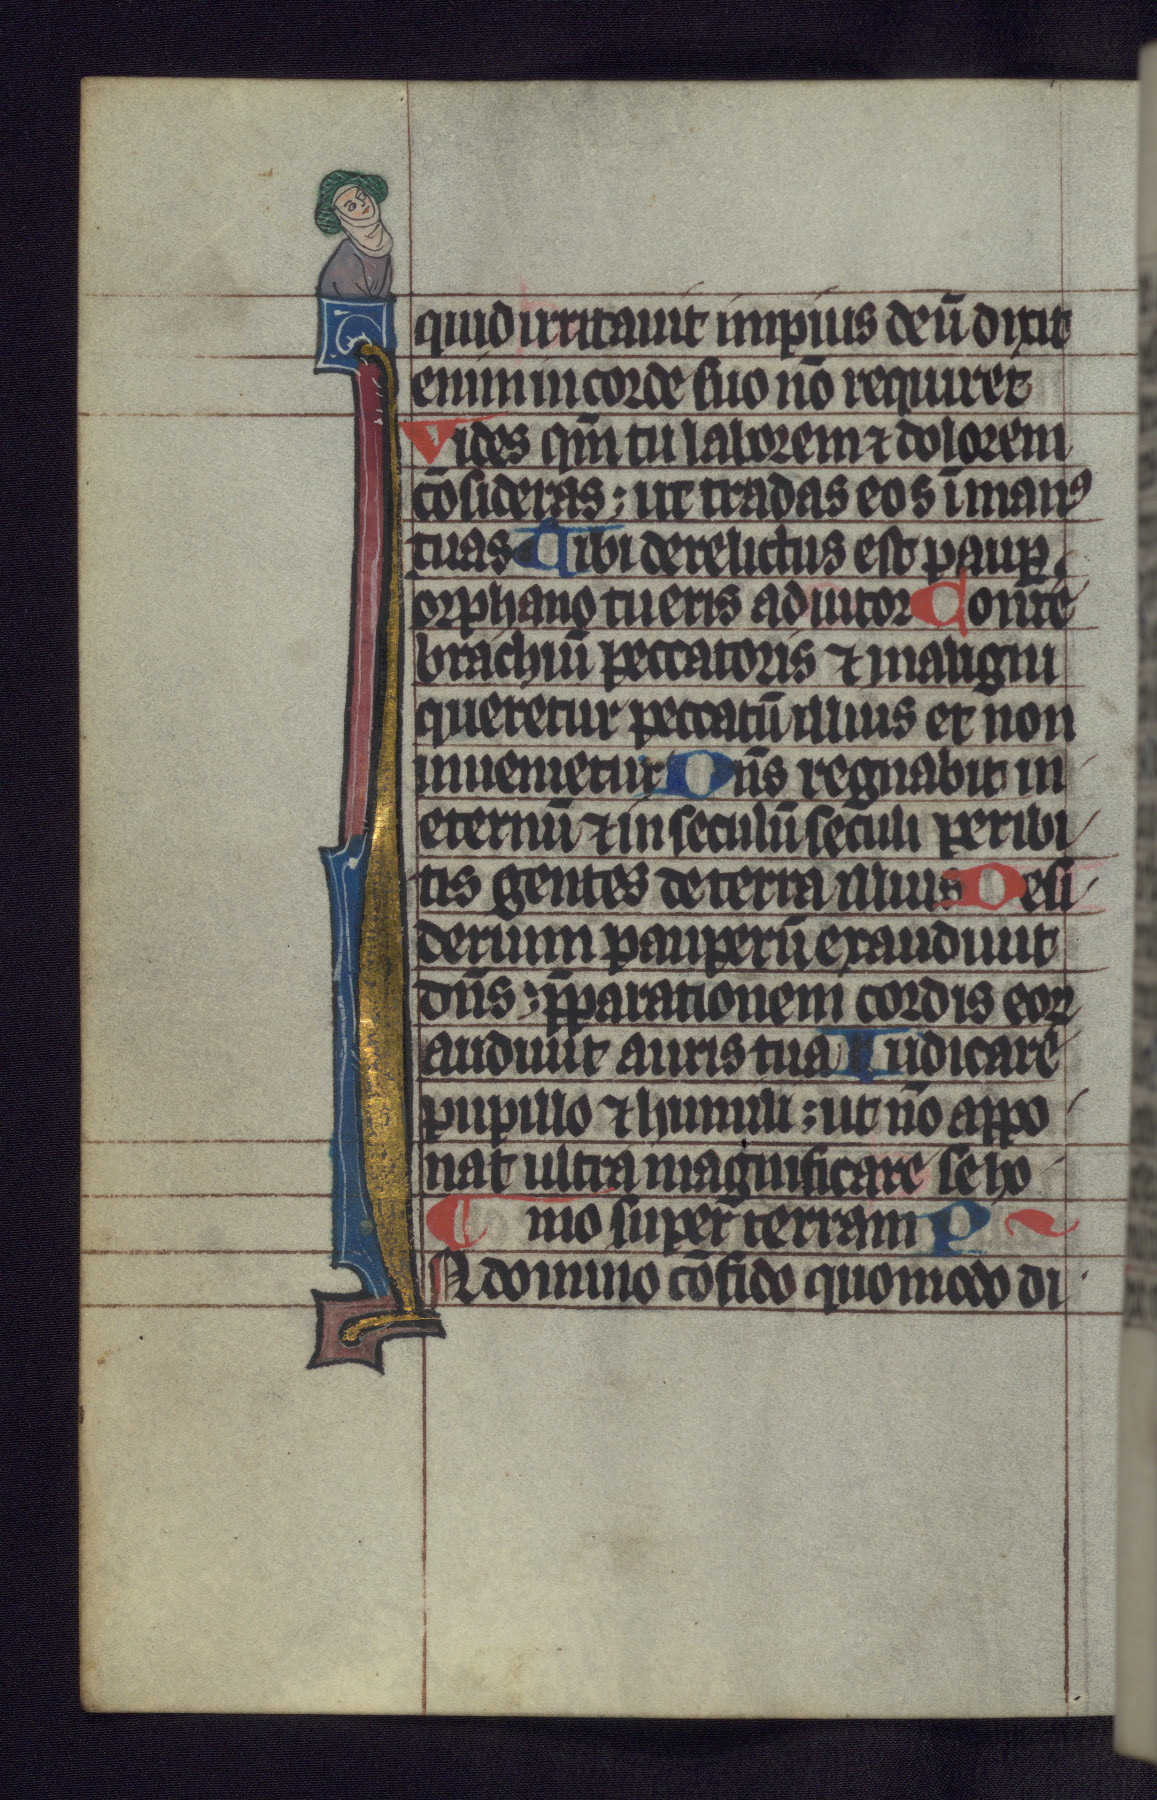 quid irritauit impius deū dixit
enim in corde suo nō requiret
Vides qm̄ tu laborem ⁊ dolorem
cōsideras ; ut tradas eos ī manꝰ
tuas Tibi derelictus est paup̄
orphano tu eris adiutor Conte
brachiū peccatoris ⁊ maligni
queretur peccatū illius et non
inuenietur Dn̄s regnabit in
eternū ⁊ in seculū seculi peribi
tis gentes de terra illius Desi
derium pauperū exaudiuit
dn̄s ; p̄parationem cordis eoꝝ
audiuit auris tua Iudicare
pupillo ⁊ humili ; ut nō appo
nat ultra magnificare se ho
mo super terram P
N domino cōfido quomodo di